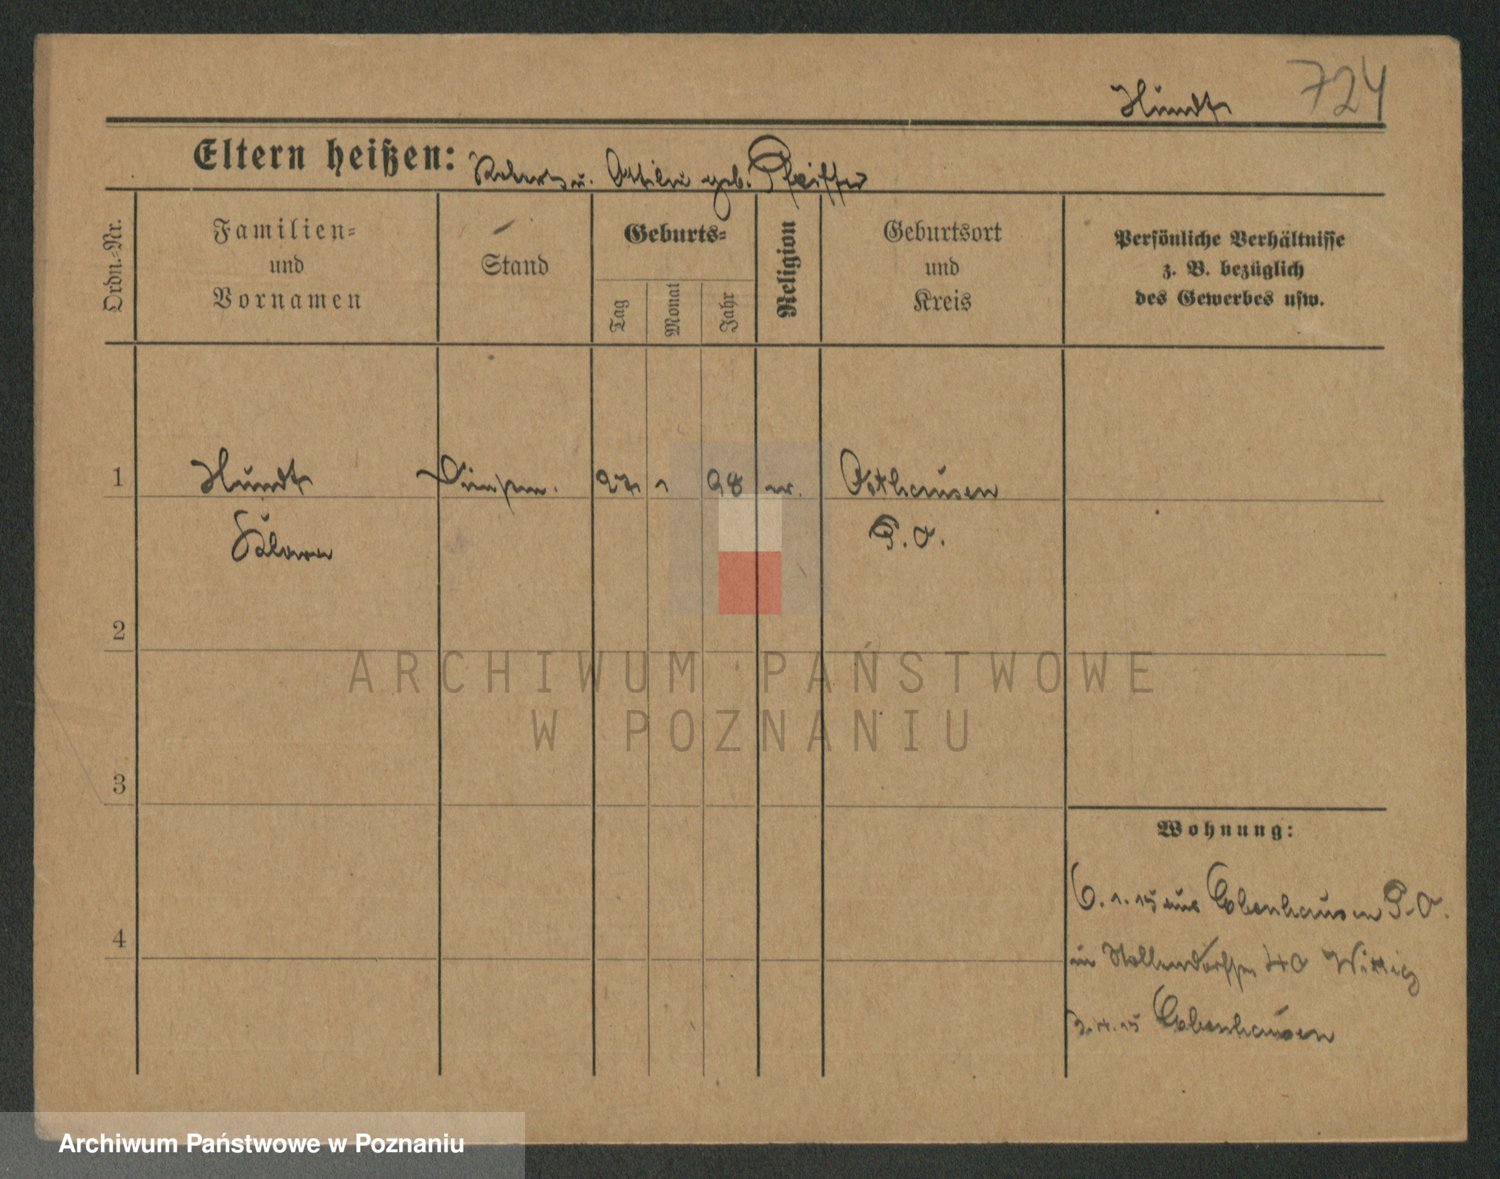 Hundt 724
Eltern heißen: Robert u. Ottilie geb. Pfeiffer
Ordn.-Nr.
Familien-
und
Vornamen
Stand
Geburts-
Tag
Monat
Jahr
Religion
Geburtsort
und
Kreis
Persönliche Verhältnisse
z. B. bezüglich
des Gewerbes usw.
1 Hundt 27 1 98 ev. Osthausen
Klara P. O.
2
3
4
Wohnung:
6. 1. 15 aus Ebenhausen P. O.
in 40 Wittig
3. 4. 15 Ebenhausen
ARCHIWUM PAŃSTWOWE
W POZNANIU
Archiwum Państwowe w Poznaniu